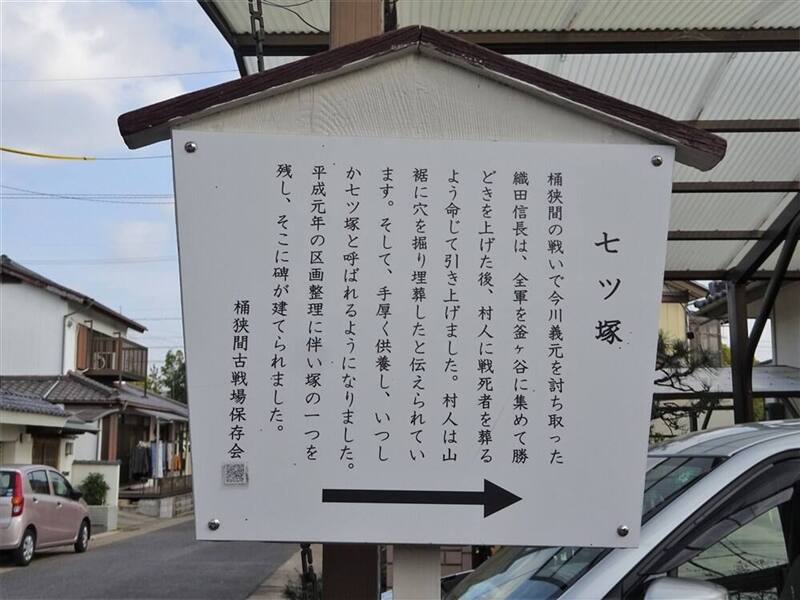 七ツ塚
桶狭間の戦いで今川義元を討ち取った
織田信長は、全軍を釜ヶ谷に集めて勝
どきを上げた後、村人に戦死者を葬る
よう命じて引き上げました。村人は山
裾に穴を掘り埋葬したと伝えられてい
ます。そして、手厚く供養し、いつし
か七ツ塚と呼ばれるようになりました。
平成元年の区画整理に伴い塚の一つを
残し、そこに碑が建てられました。
桶狭間古戦場保存会